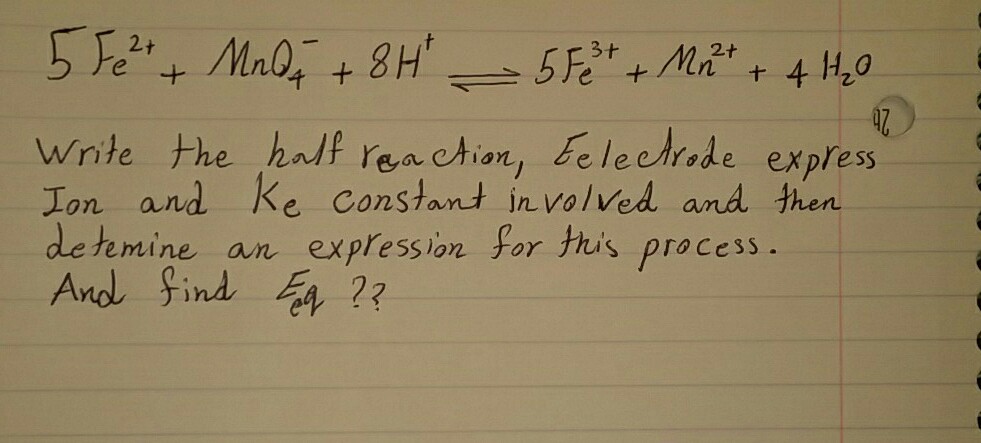 5 Fe²⁺ + MnO₄⁻ + 8H⁺ ⇌ 5Fe³⁺ + Mn²⁺ + 4 H₂O
Write the half reaction, Eelectrode express
Ion and Ke constant involved and then
detemine an expression for this process.
And find Eeq ??